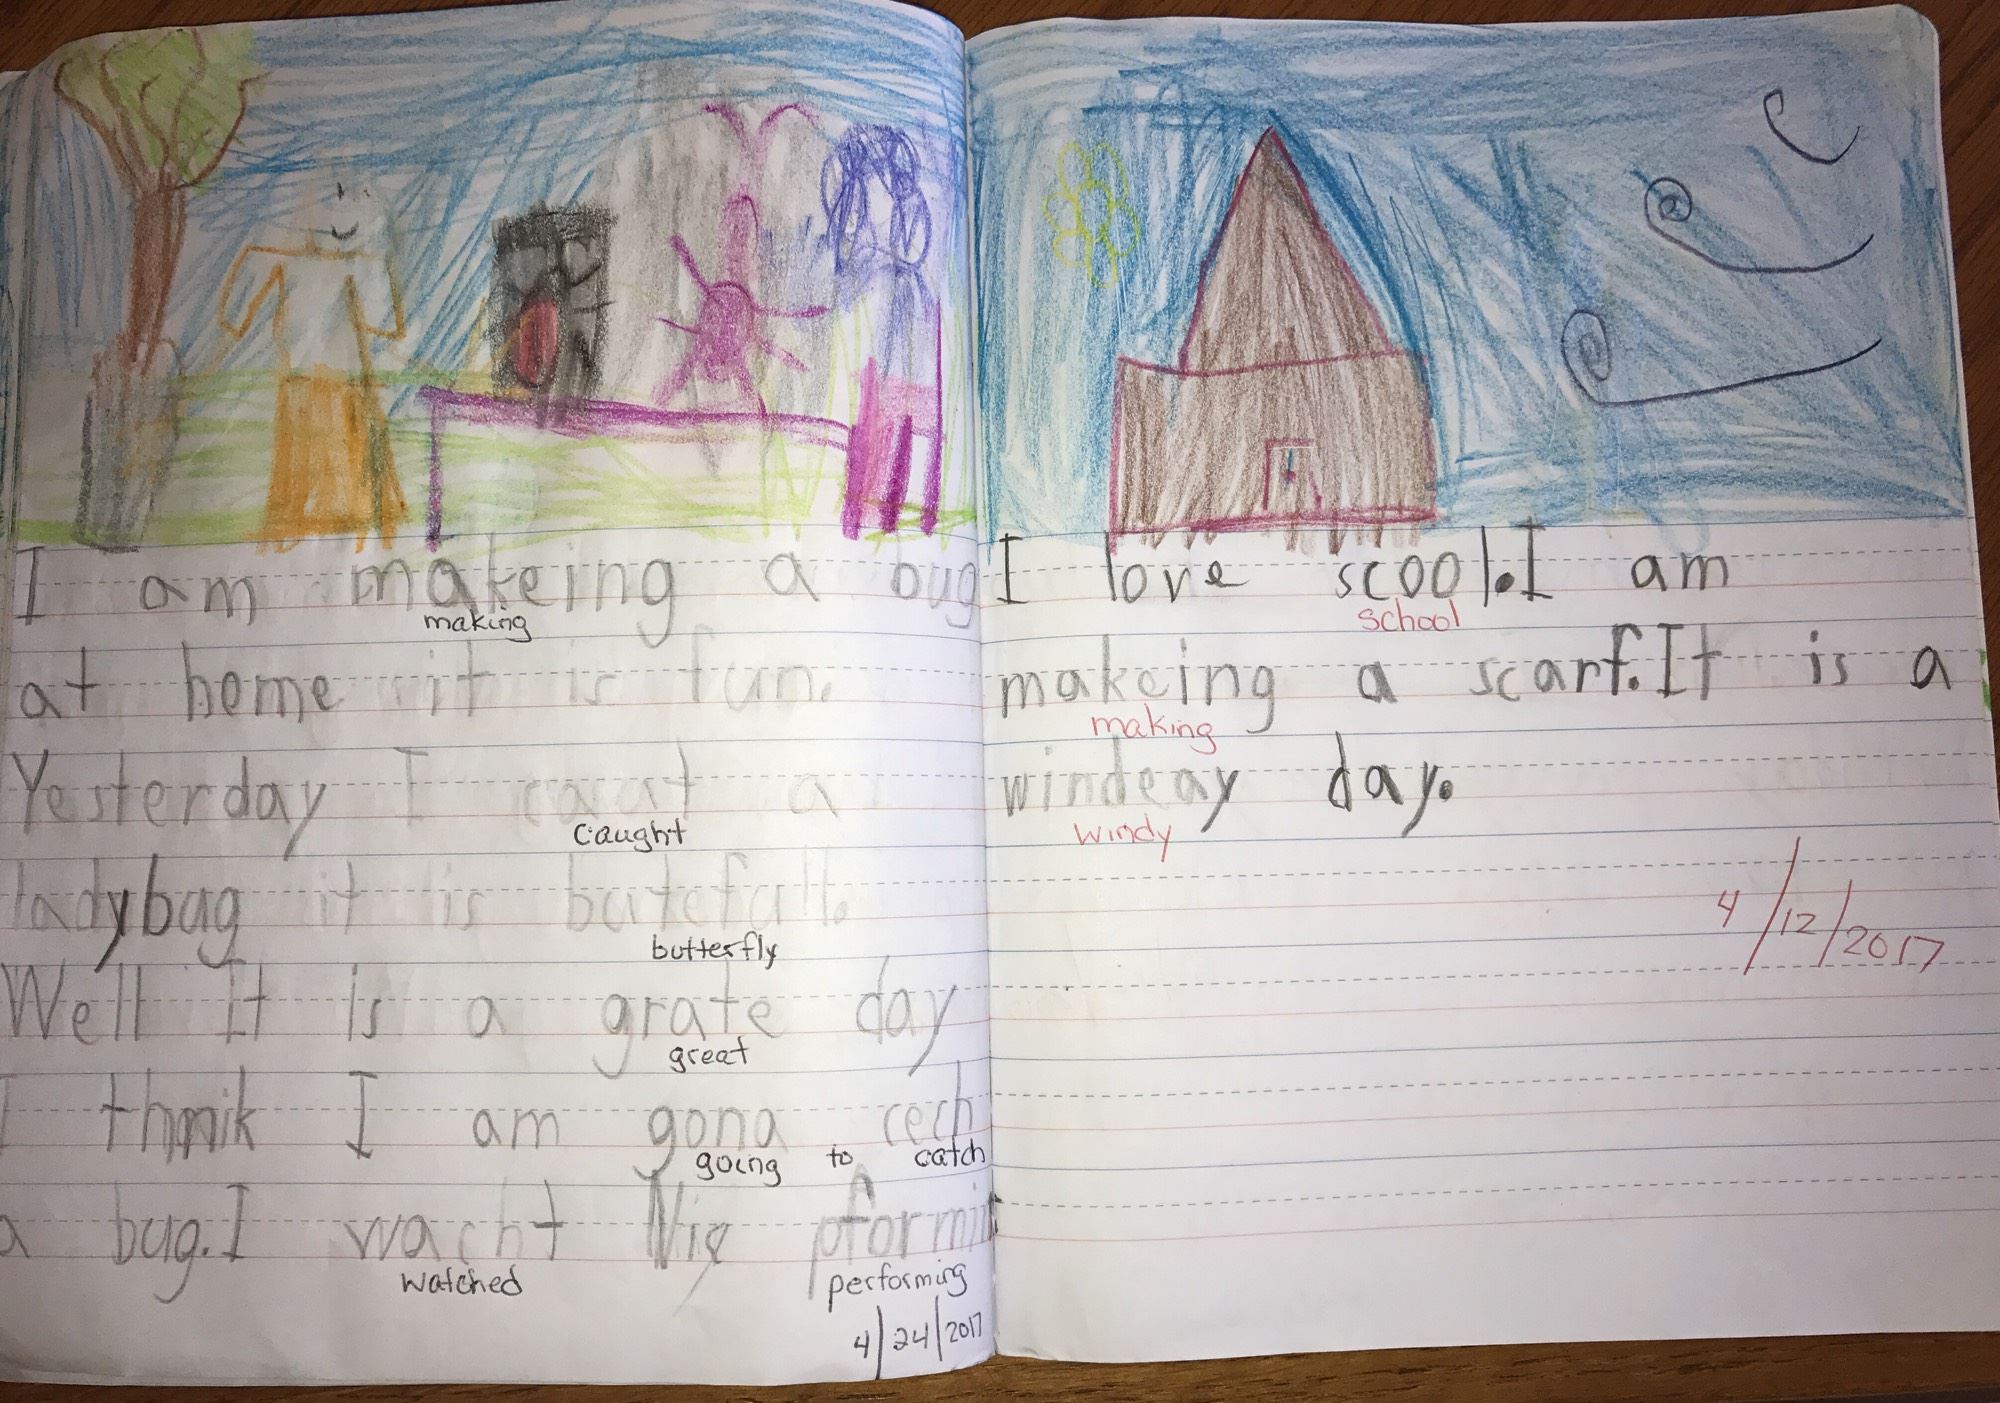 I am makeing a bug
making
at home it is fun.
Yesterday I caut a
caught
ladybug it is butefull.
butterfly
Well It is a grate day
great
I thnik I am gona cech
going to catch
a bug. I wacht pformin
watched performing
4/24/2017
I love scool. I am
school
makeing a scarf. It is a
making
windeay day.
windy
4/12/2017